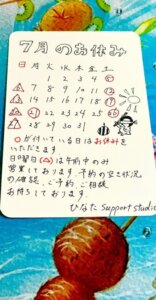 7月のお休み
日 月 火 水 木 金 土
1 2 3 4 5
6 7 8 9 10 11 12
13 14 15 16 17 18 19
20 21 22 23 24 25 26
27 28 29 30 31
○が付いている日はお休みを
いただきます
日曜日(△)は午前中のみ
営業しております 予約の空き状況
の確認、ご予約、ご相談
お待ちしております
ひなた Support studio